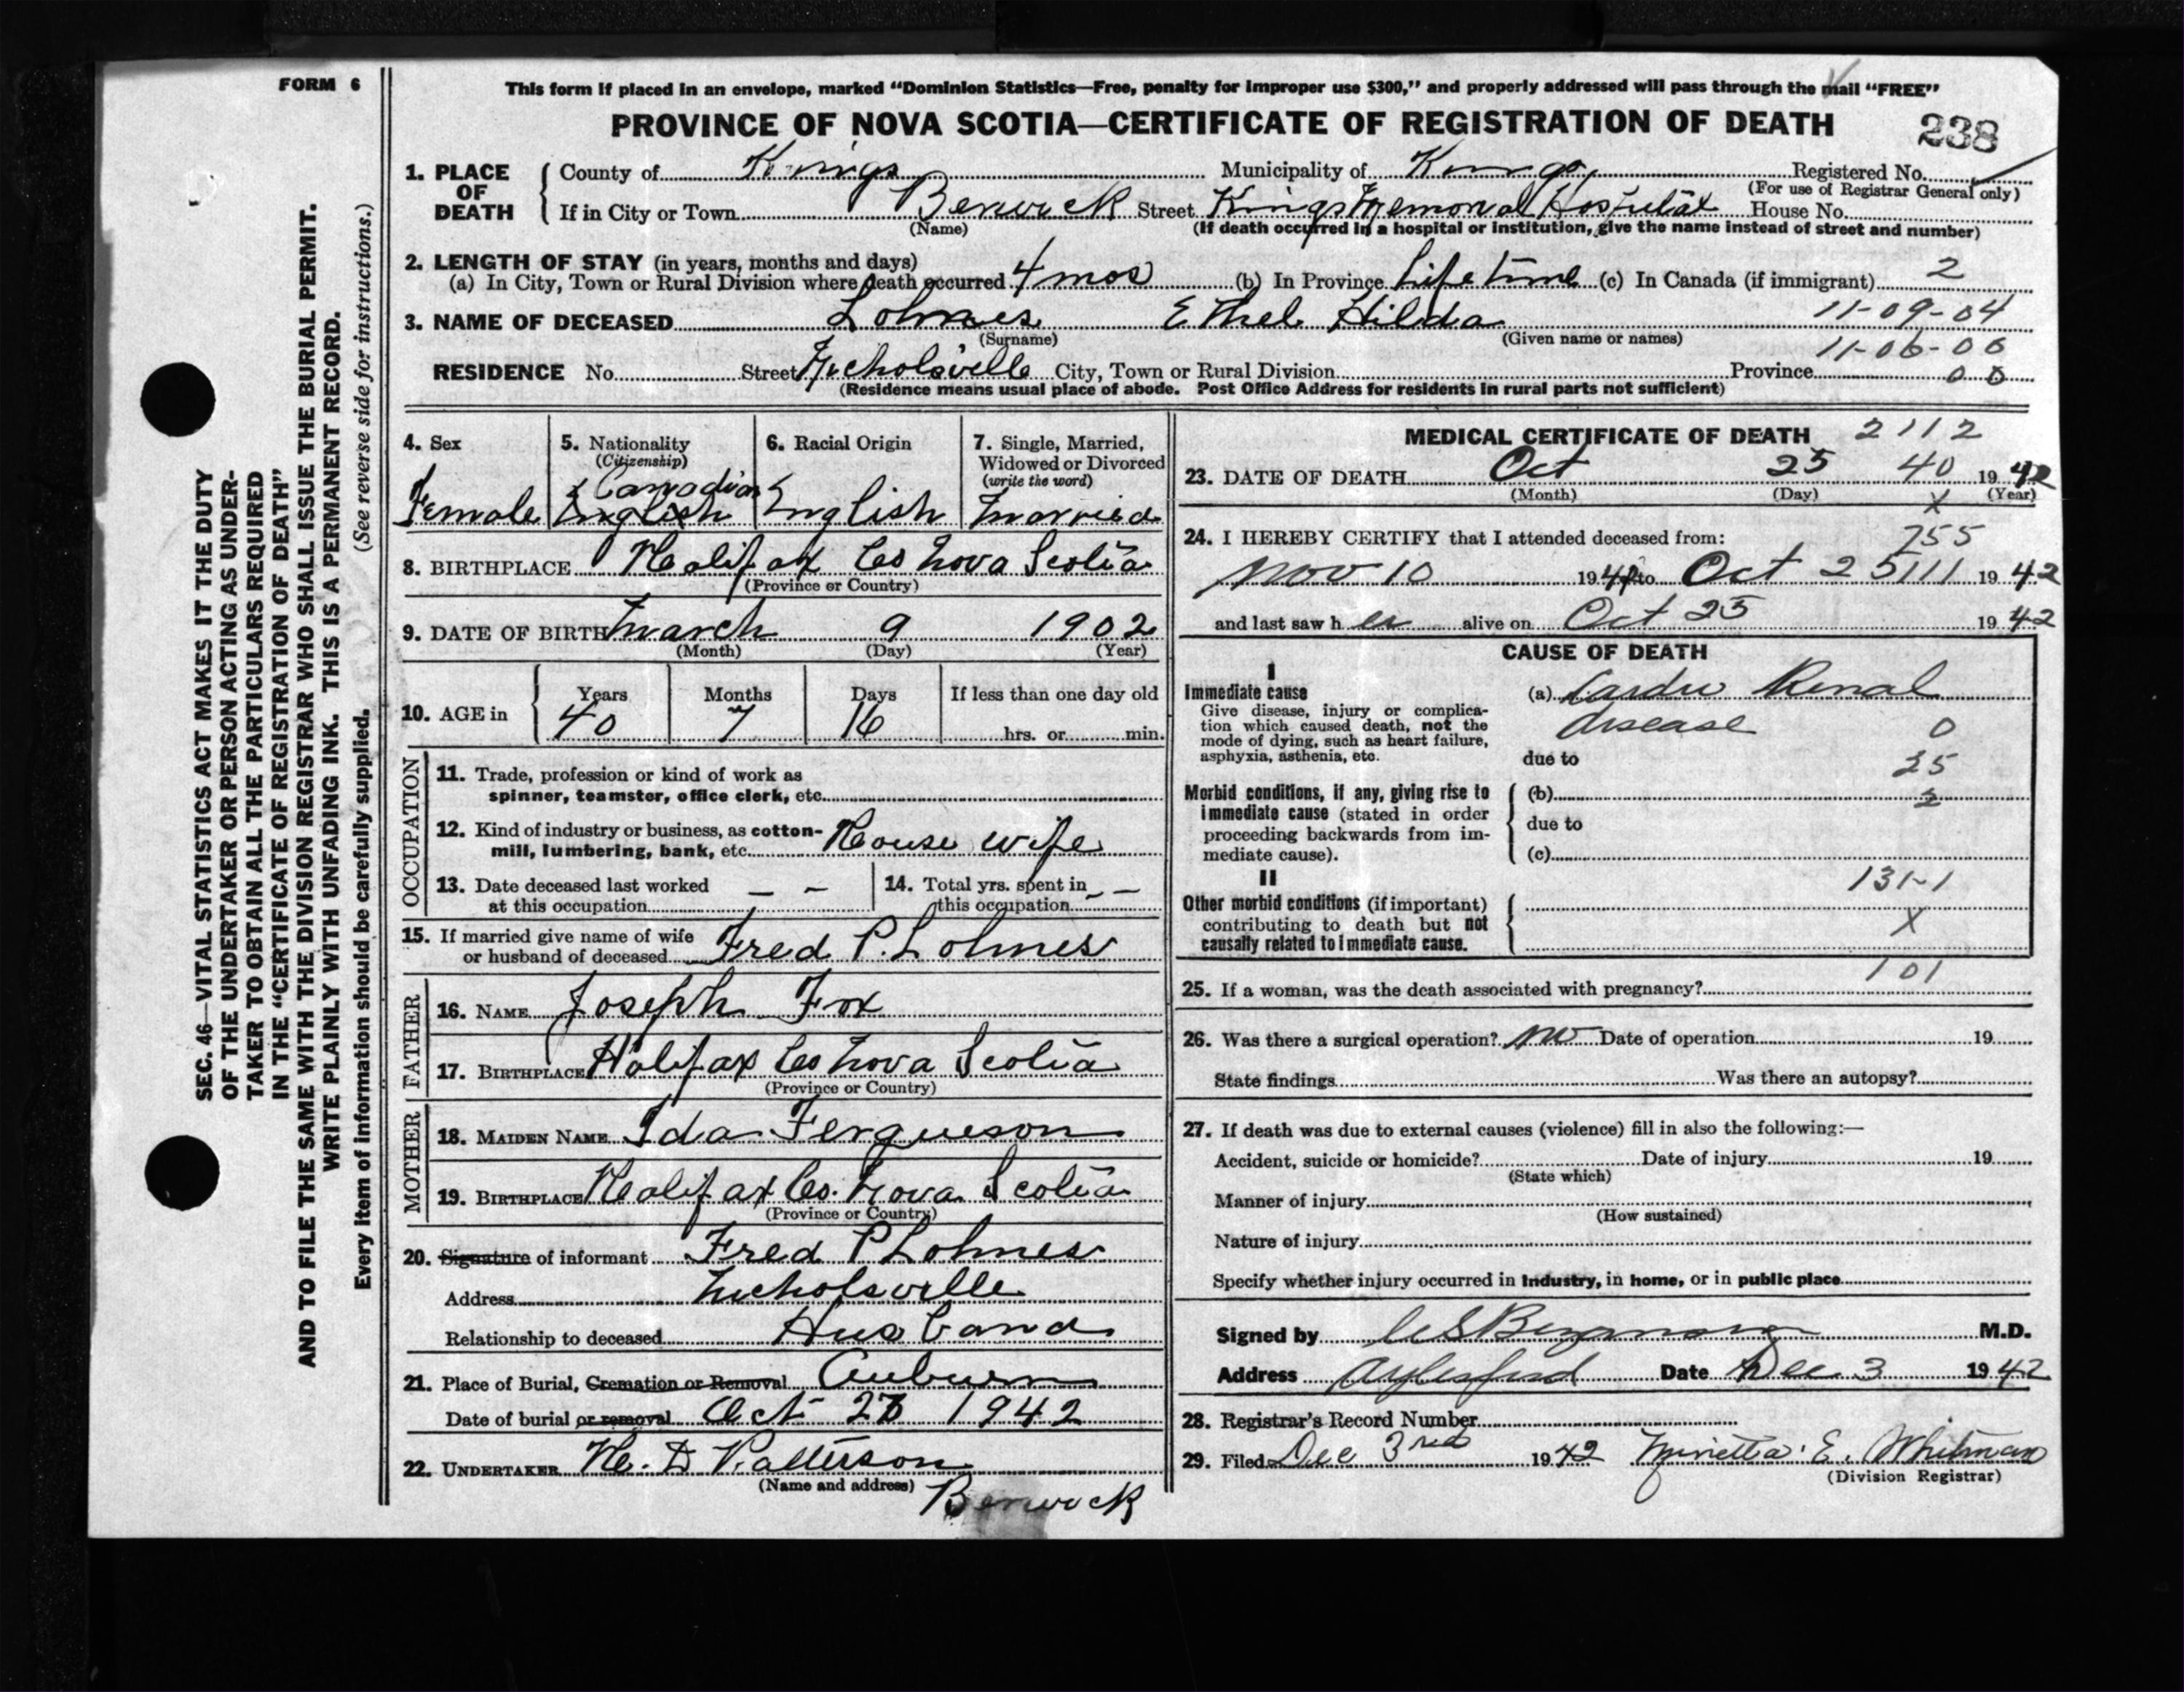 FORM 6
This form if placed in an envelope, marked “Dominion Statistics—Free, penalty for improper use $300,” and properly addressed will pass through the mail “FREE”
PROVINCE OF NOVA SCOTIA—CERTIFICATE OF REGISTRATION OF DEATH
238
SEC. 46—VITAL STATISTICS ACT MAKES IT THE DUTY
OF THE UNDERTAKER OR PERSON ACTING AS UNDER-
TAKER TO OBTAIN ALL THE PARTICULARS REQUIRED
IN THE “CERTIFICATE OF REGISTRATION OF DEATH”
AND TO FILE THE SAME WITH THE DIVISION REGISTRAR WHO SHALL ISSUE THE BURIAL PERMIT.
WRITE PLAINLY WITH UNFADING INK. THIS IS A PERMANENT RECORD.
Every item of information should be carefully supplied. (See reverse side for instructions.)
1. PLACE OF DEATH County of Kings Municipality of Kings Registered No.
(For use of Registrar General only)
If in City or Town Berwick Street Kings Memorial Hospital House No.
(Name) (If death occurred in a hospital or institution, give the name instead of street and number)
2. LENGTH OF STAY (in years, months and days)
(a) In City, Town or Rural Division where death occurred 4 mos (b) In Province Life time (c) In Canada (if immigrant) 2
3. NAME OF DECEASED Lohnes Ethel Hilda 11-09-04
(Surname) (Given name or names) 11-06-00
RESIDENCE No. Street Nicholsville City, Town or Rural Division Province 00
(Residence means usual place of abode. Post Office Address for residents in rural parts not sufficient)
4. Sex
Female
5. Nationality
(Citizenship)
Canadian
English
6. Racial Origin
English
7. Single, Married,
Widowed or Divorced
(write the word)
Married
8. BIRTHPLACE Halifax Co Nova Scotia
(Province or Country)
9. DATE OF BIRTH March 9 1902
(Month) (Day) (Year)
10. AGE in Years Months Days If less than one day old
40 7 16 hrs. or min.
OCCUPATION
11. Trade, profession or kind of work as
spinner, teamster, office clerk, etc.
12. Kind of industry or business, as cotton-
mill, lumbering, bank, etc. House wife
13. Date deceased last worked
at this occupation — —
14. Total yrs. spent in
this occupation — —
15. If married give name of wife
or husband of deceased Fred P. Lohnes
FATHER
16. NAME Joseph Fox
17. BIRTHPLACE Halifax Co Nova Scotia
(Province or Country)
MOTHER
18. MAIDEN NAME Ida Fergueson
19. BIRTHPLACE Halifax Co. Nova Scotia
(Province or Country)
20. Signature of informant Fred P Lohnes
Address Nicholsville
Relationship to deceased Husband
21. Place of Burial, Cremation or Removal Auburn
Date of burial or removal Oct 27 1942
22. UNDERTAKER H. D Patterson
(Name and address) Berwick
MEDICAL CERTIFICATE OF DEATH 2112
23. DATE OF DEATH Oct 25 40 1942
(Month) (Day) X (Year)
24. I HEREBY CERTIFY that I attended deceased from: 755
Nov 10 194 to Oct 25 111 1942
and last saw her alive on Oct 25 1942
CAUSE OF DEATH
I
Immediate cause (a) Cardio Renal
Give disease, injury or complica-
tion which caused death, not the
mode of dying, such as heart failure,
asphyxia, asthenia, etc.
disease 0
due to 25
Morbid conditions, if any, giving rise to
immediate cause (stated in order
proceeding backwards from im-
mediate cause).
(b) 2
due to
(c)
II 131-1
Other morbid conditions (if important)
contributing to death but not
causally related to immediate cause.
X
101
25. If a woman, was the death associated with pregnancy?
26. Was there a surgical operation? no Date of operation 19
State findings Was there an autopsy?
27. If death was due to external causes (violence) fill in also the following:—
Accident, suicide or homicide? Date of injury 19
(State which)
Manner of injury
(How sustained)
Nature of injury
Specify whether injury occurred in industry, in home, or in public place
Signed by M.D.
Address Aylesford Date Dec 3 1942
28. Registrar's Record Number
29. Filed Dec 3rd 1942 Minetta E. Whitman
(Division Registrar)